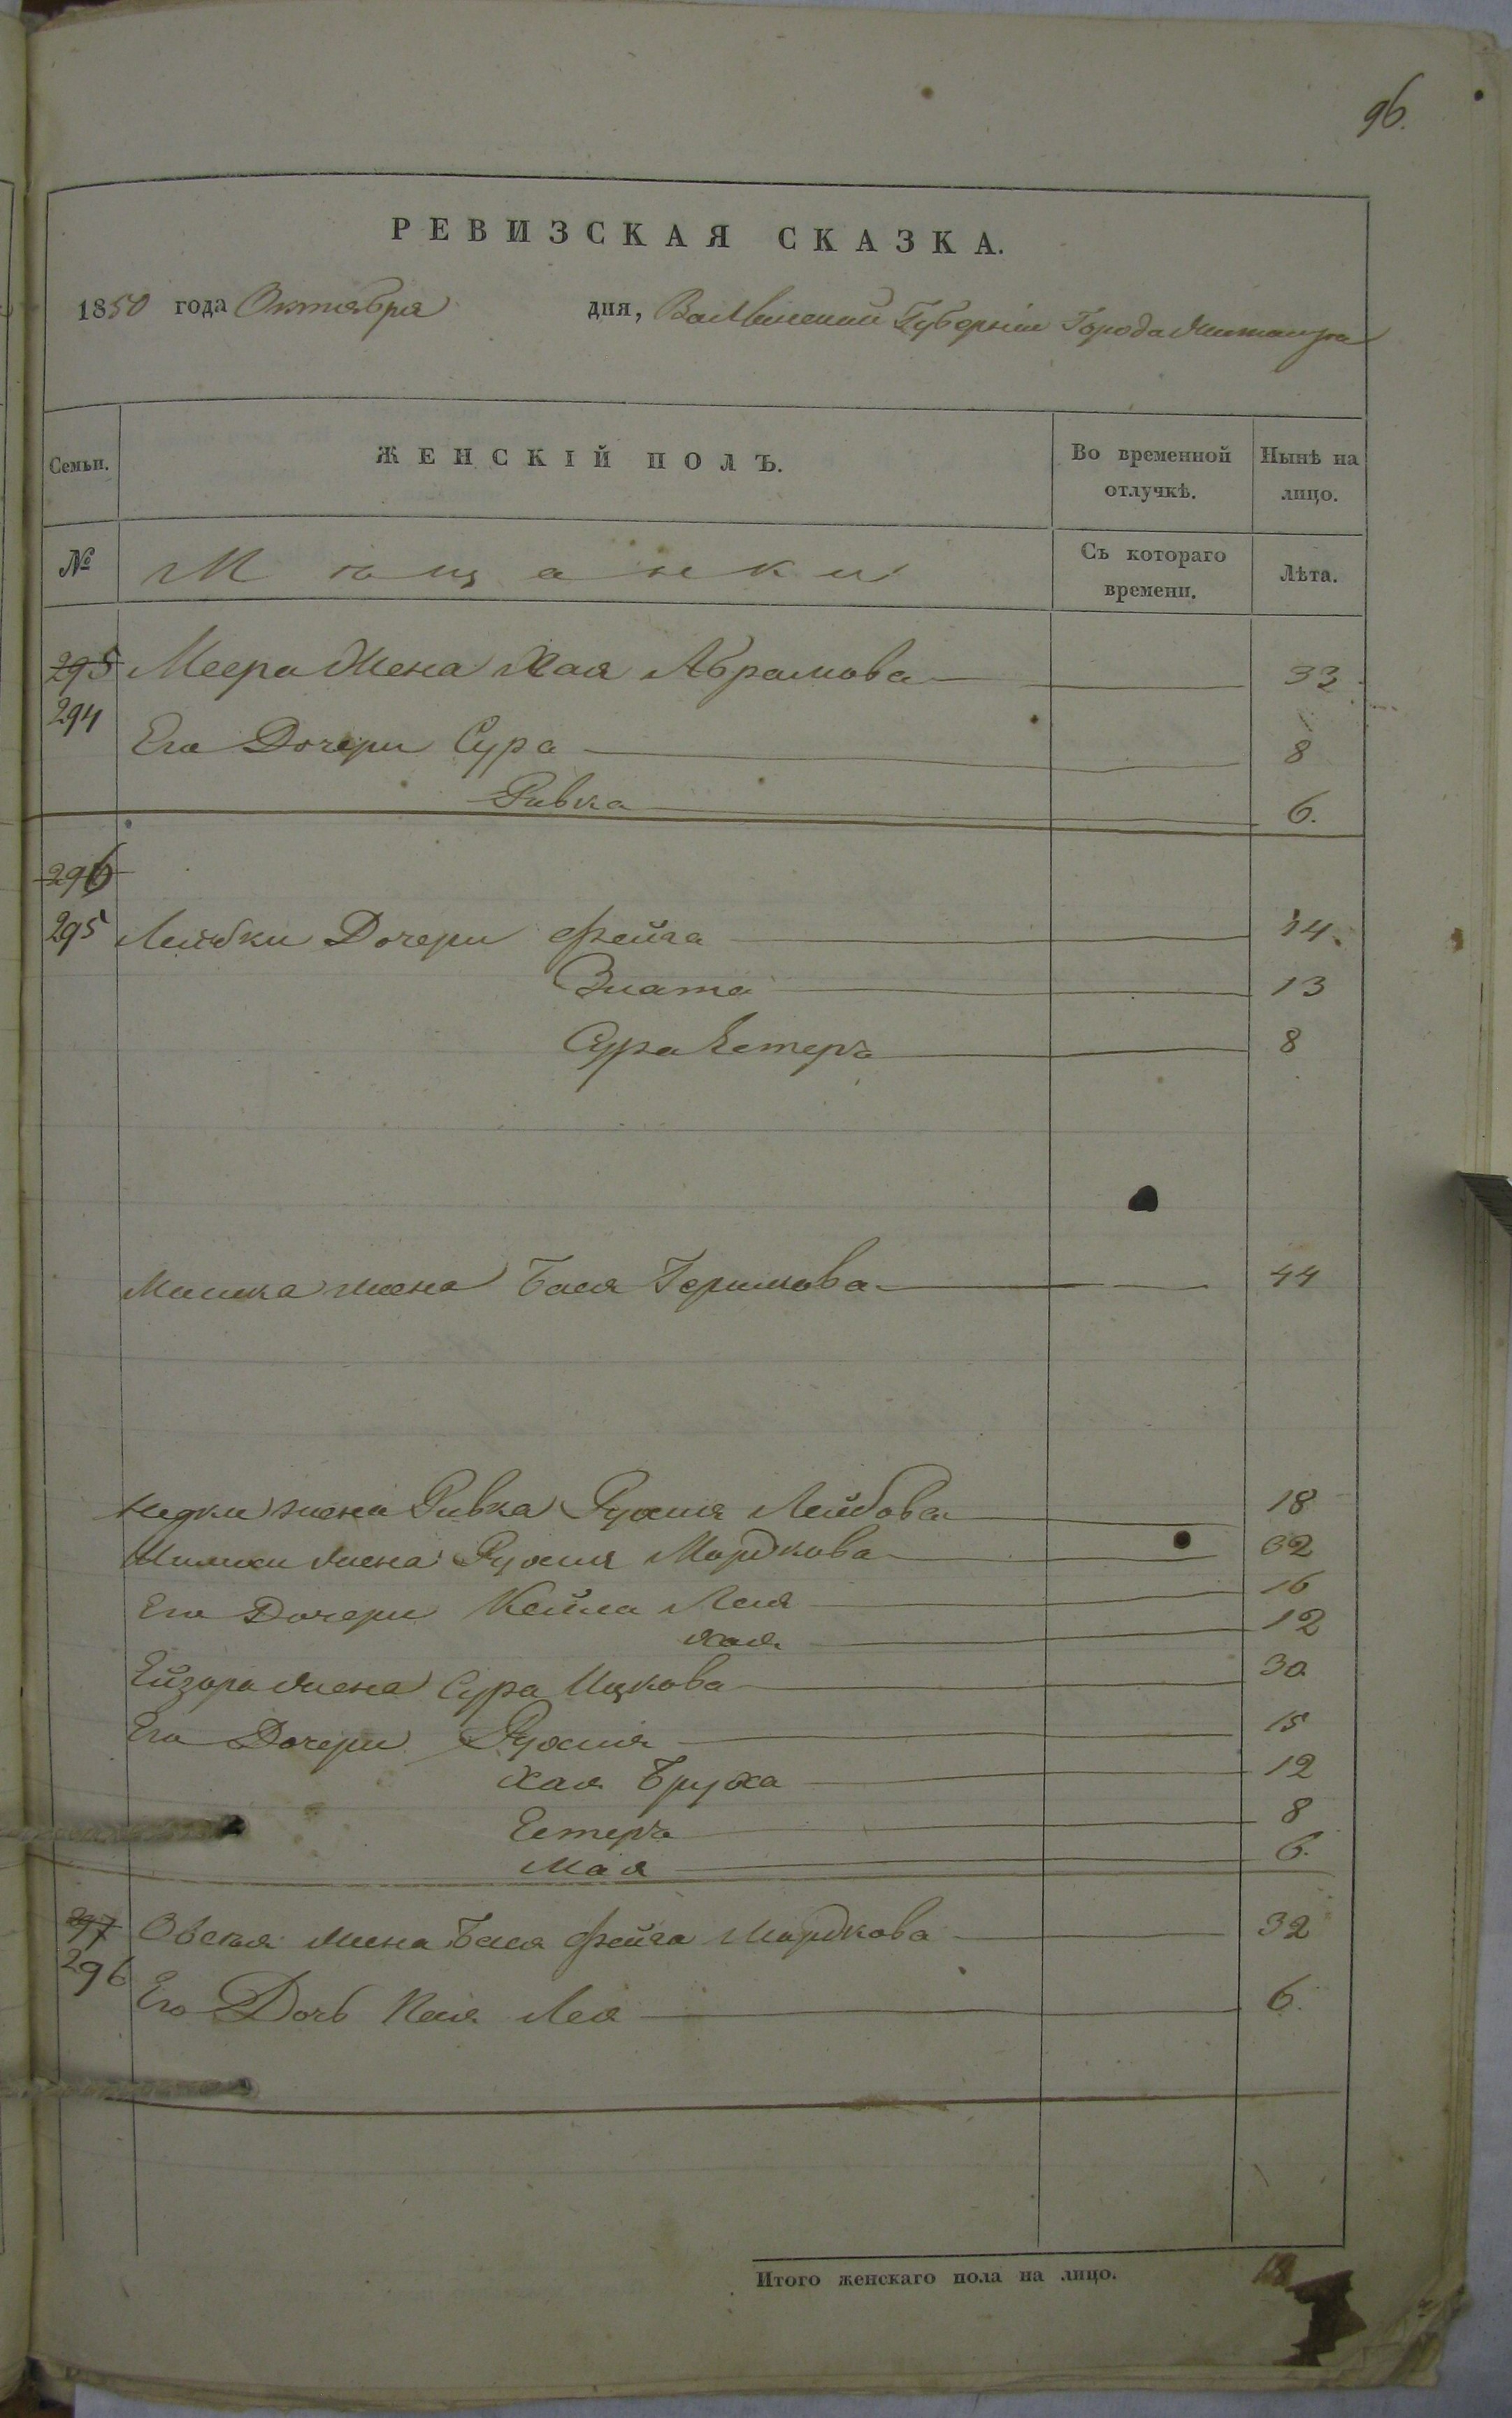 96.
РЕВИЗСКАЯ СКАЗКА.
1850 года Октября дня, Волынской Губерніи Города Житомира
Семьи. ЖЕНСКІЙ ПОЛЪ. Во временной отлучкѣ. Нынѣ на лицо.
№ Мѣщанки Съ котораго времени. Лѣта.
295 Меера Жена Хая Абрамова 33
294
Его Дочери Сура 8
Ривка 6.
296
295 Лейбки Дочери Фейга 14.
Злата 13
Сура Естеръ 8
Жена Бася Гершкова 44
жена Ривка Рухля Лейбова 18
Жена Рухля Мордкова 32
Его Дочери Кейла Лея 16
Хая 12
Ейзора Жена Сура Ицкова 30
Его Дочери Рухля 15
Хая Бруха 12
Естеръ 8
Мая 6.
297 Овсея Жена Бася Фейга Мордкова 32
296
Его Дочь Лея 6.
Итого женскаго пола на лицо. 18